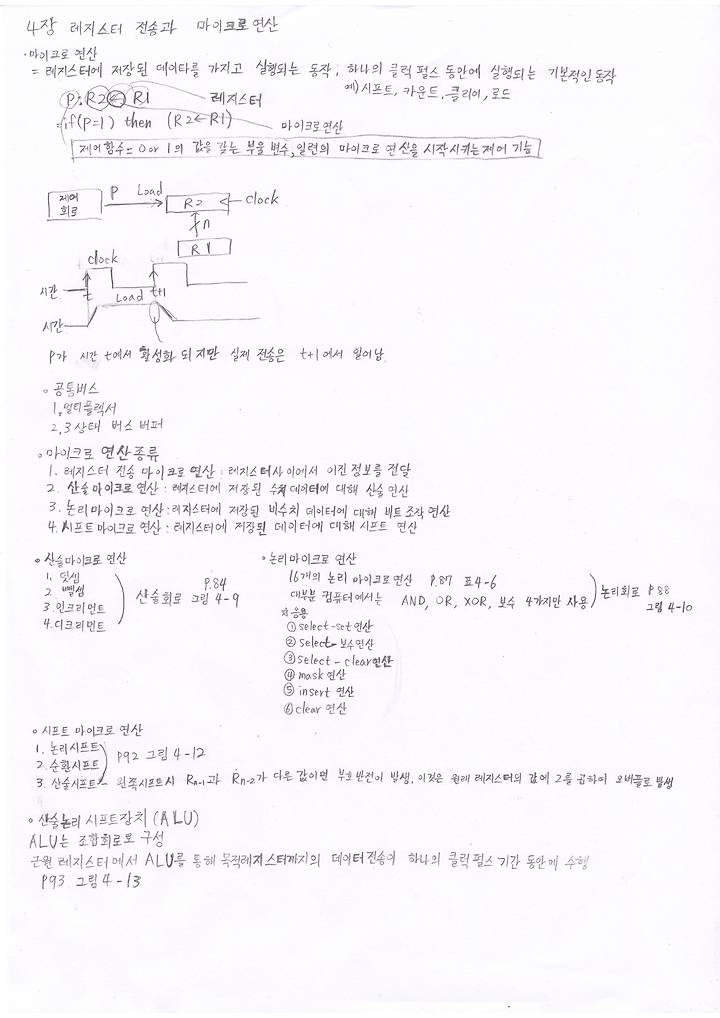 4장 레지스터 전송과 마이크로 연산
·마이크로 연산
= 레지스터에 저장된 데이타를 가지고 실행되는 동작; 하나의 클럭 펄스 동안에 실행되는 기본적인 동작
예) 시프트, 카운트, 클리어, 로드
P: R2 ← R1 레지스터
= if(P=1) then (R2←R1) 마이크로연산
제어함수= 0 or 1의 값을 갖는 부울 변수, 일련의 마이크로 연산을 시작시키는 제어 기능
제어 회로 P Load R2 clock
n
R1
clock
시간 t Load t+1
시간
P가 시간 t에서 활성화 되지만 실제 전송은 t+1에서 일어남
○ 공통버스
1, 멀티플렉서
2, 3상태 버스 버퍼
○ 마이크로 연산종류
1. 레지스터 전송 마이크로 연산 : 레지스터사이에서 이진 정보를 전달
2. 산술마이크로 연산 : 레지스터에 저장된 수치데이터에 대해 산술 연산
3. 논리마이크로 연산 : 레지스터에 저장된 비수치 데이터에 대해 비트 조작 연산
4. 시프트마이크로 연산 : 레지스터에 저장된 데이터에 대해 시프트 연산
○ 산술마이크로 연산
1. 덧셈
2. 뺄셈
3. 인크리먼트
4. 디크리먼트
산술회로 P.84 그림 4-9
○ 논리마이크로 연산
16개의 논리 마이크로연산 P.87 표4-6
대부분 컴퓨터에서는 AND, OR, XOR, 보수 4가지만 사용
논리회로 P88 그림 4-10
응용
① select-set연산
② select-보수연산
③ select-clear연산
④ mask 연산
⑤ insert 연산
⑥ clear 연산
○ 시프트 마이크로 연산
1. 논리시프트
2. 순환시프트
P92 그림 4-12
3. 산술시프트- 왼쪽시프트시 Rn-1과 Rn-2가 다른 값이면 부호반전이 발생. 이것은 원래 레지스터의 값에 2를 곱하여 오버플로 발생
○ 산술논리 시프트장치 (ALU)
ALU는 조합회로로 구성
근원 레지스터에서 ALU를 통해 목적레지스터까지의 데이터 전송이 하나의 클럭 펄스 기간 동안에 수행
P93 그림 4-13